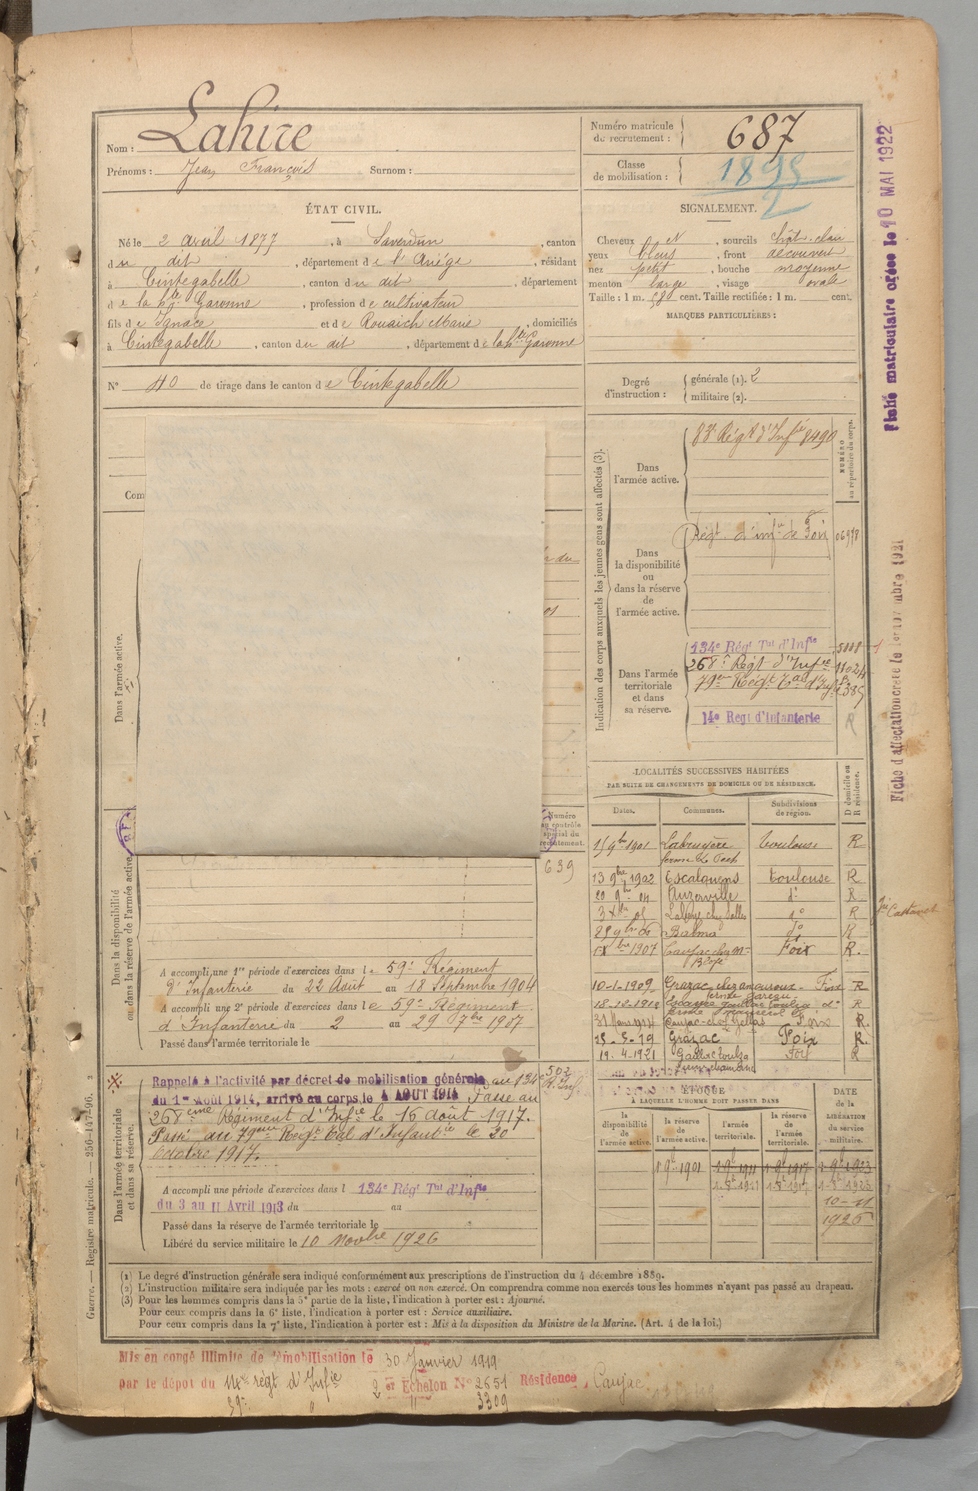 Nom : Lahire
Prénoms : Jean François Surnom :
Numéro matricule de recrutement : 687
Classe de mobilisation : 1895
2
ÉTAT CIVIL.
Né le 2 avril 1877, à Saverdun, canton
du dit, département de l'Ariège, résidant
à Cintegabelle, canton du dit, département
de la Hte Garonne, profession de cultivateur
fils de Ignace et de Rouaich Marie, domiciliés
à Cintegabelle, canton du dit, département de la Hte Garonne
N° 40 de tirage dans le canton de Cintegabelle
SIGNALEMENT.
Cheveux et, sourcils chât. clair
yeux bleus, front découvert
nez petit, bouche moyenne
menton large, visage ovale
Taille : 1 m. 58 cent. Taille rectifiée : 1 m. cent.
MARQUES PARTICULIÈRES :
Degré d'instruction : générale (1). 2
militaire (2).
Com
Indication des corps auxquels les jeunes gens sont affectés (3).
NUMÉRO au répertoire du corps.
Dans l'armée active.
83e Régt d'Infie 8490
Dans la disponibilité ou dans la réserve de l'armée active.
Régt d'infie de Foix
Dans l'armée territoriale et dans sa réserve.
134e Régt Tal d'Infie
268e Régt d'Infie
79e Régt Tal d'Inf.
14e Régt d'Infanterie R
LOCALITÉS SUCCESSIVES HABITÉES
PAR SUITE DE CHANGEMENTS DE DOMICILE OU DE RÉSIDENCE.
Dates. Communes. Subdivisions de région. D domicile ou R résidence.
15 9bre 1901 Labruyère Toulouse R
13 9bre 1902 Escalquens Toulouse R
Auzerville d° R
d° R
Balma d° R
1907 Foix R.
10-1-1909 Grazac Foix R
R
31 Mars 1914 Foix R.
15-5-19 Grazac Foix R.
19-4-1921 Foix R
Dans l'armée active.
Numéro au contrôle spécial du recrutement.
639
Dans la disponibilité ou dans la réserve de l'armée active.
A accompli une 1re période d'exercices dans le 59e Régiment
d'Infanterie du 22 Août au 18 Septembre 1904
A accompli une 2e période d'exercices dans le 59e Régiment
d'Infanterie du 2 au 29 7bre 1907
Passé dans l'armée territoriale le
Dans l'armée territoriale et dans sa réserve.
Rappelé à l'activité par décret de mobilisation générale au 134e
du 1er Août 1914, arrivé au corps le 4 AOUT 1914 Passé au
268eme Régiment d'Infie le 16 août 1917.
Passé au 79eme Régt Tal d'Infantie le 30
Octobre 1917.
A accompli une période d'exercices dans l 134e Régt Tal d'Infie
du 3 au 11 Avril 1913 du au
Passé dans la réserve de l'armée territoriale le
Libéré du service militaire le 10 Novbre 1926
ÉPOQUE
À LAQUELLE L'HOMME DOIT PASSER DANS
la disponibilité de l'armée active. la réserve de l'armée active. l'armée territoriale. la réserve de l'armée territoriale.
DATE de la LIBÉRATION du service militaire.
1 9b 1901 1 9b 1911 1 9b 1917 1 9b 1923
10-11
1926
(1) Le degré d'instruction générale sera indiqué conformément aux prescriptions de l'instruction du 4 décembre 1889.
(2) L'instruction militaire sera indiquée par les mots : exercé ou non exercé. On comprendra comme non exercés tous les hommes n'ayant pas passé au drapeau.
(3) Pour les hommes compris dans la 5e partie de la liste, l'indication à porter est : Ajourné.
Pour ceux compris dans la 6e liste, l'indication à porter est : Service auxiliaire.
Pour ceux compris dans la 7e liste, l'indication à porter est : Mis à la disposition du Ministre de la Marine. (Art. 4 de la loi.)
Mis en congé illimité de démobilisation le 30 Janvier 1919
par le dépôt du 14e régt d'Infie 2er Echelon N° 2651 Résidence, Caujac
3309
Fiche matriculaire créée le 10 MAI 1922
Fiche d'affectation créée le 1er novembre 1921
Guerre. — Registre matricule. — 256-147-96.